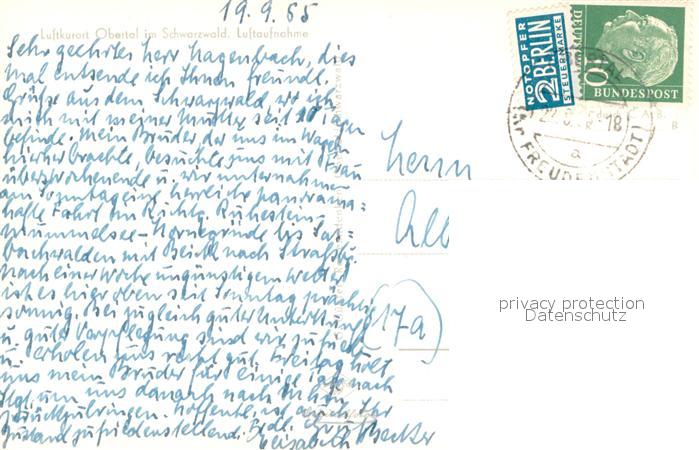 19.9.55
Luftkurort Obertal im Schwarzwald. Luftaufnahme
Sehr geehrter Herr Hagenbach, dies
mal entsende ich Ihnen freundl.
Grüße aus dem Schwarzwald, wo ich
mich mit meiner Mutter seit 10 Tagen
befinde. Mein Bruder der uns im Wagen
hierher brachte, besuchte uns mit Frau
übers Wochenende u. wir unternahmen
am Sonntag eine herrliche panorama-
hafte Fahrt in Richtg. Ruhestein-
Mummelsee-Hornisgrinde bis Sas-
bachwalden mit Blick nach Straßbg.
Nach einer Woche ungünstigem Wetter
ist es hier oben seit Sonntag prächtig
sonnig. Bei zugleich guter Unterkunft
u. guter Verpflegung sind wir zufrieden
u. erholen uns recht gut. Freitag holt
uns mein Bruder für einige Tage nach
Stgt. um uns danach nach
zurückzubringen. Hoffentl. ist auch Ihr
Zustand zufriedenstellend. Frdl. Grüße
Elisabeth Becker
NOTOPFER
2 BERLIN
STEUERMARKE
DEUTSCHE
10
BUNDESPOST
18
(Kr FREUDENSTADT)
a
Herrn
(17a)
privacy protection
Datenschutz